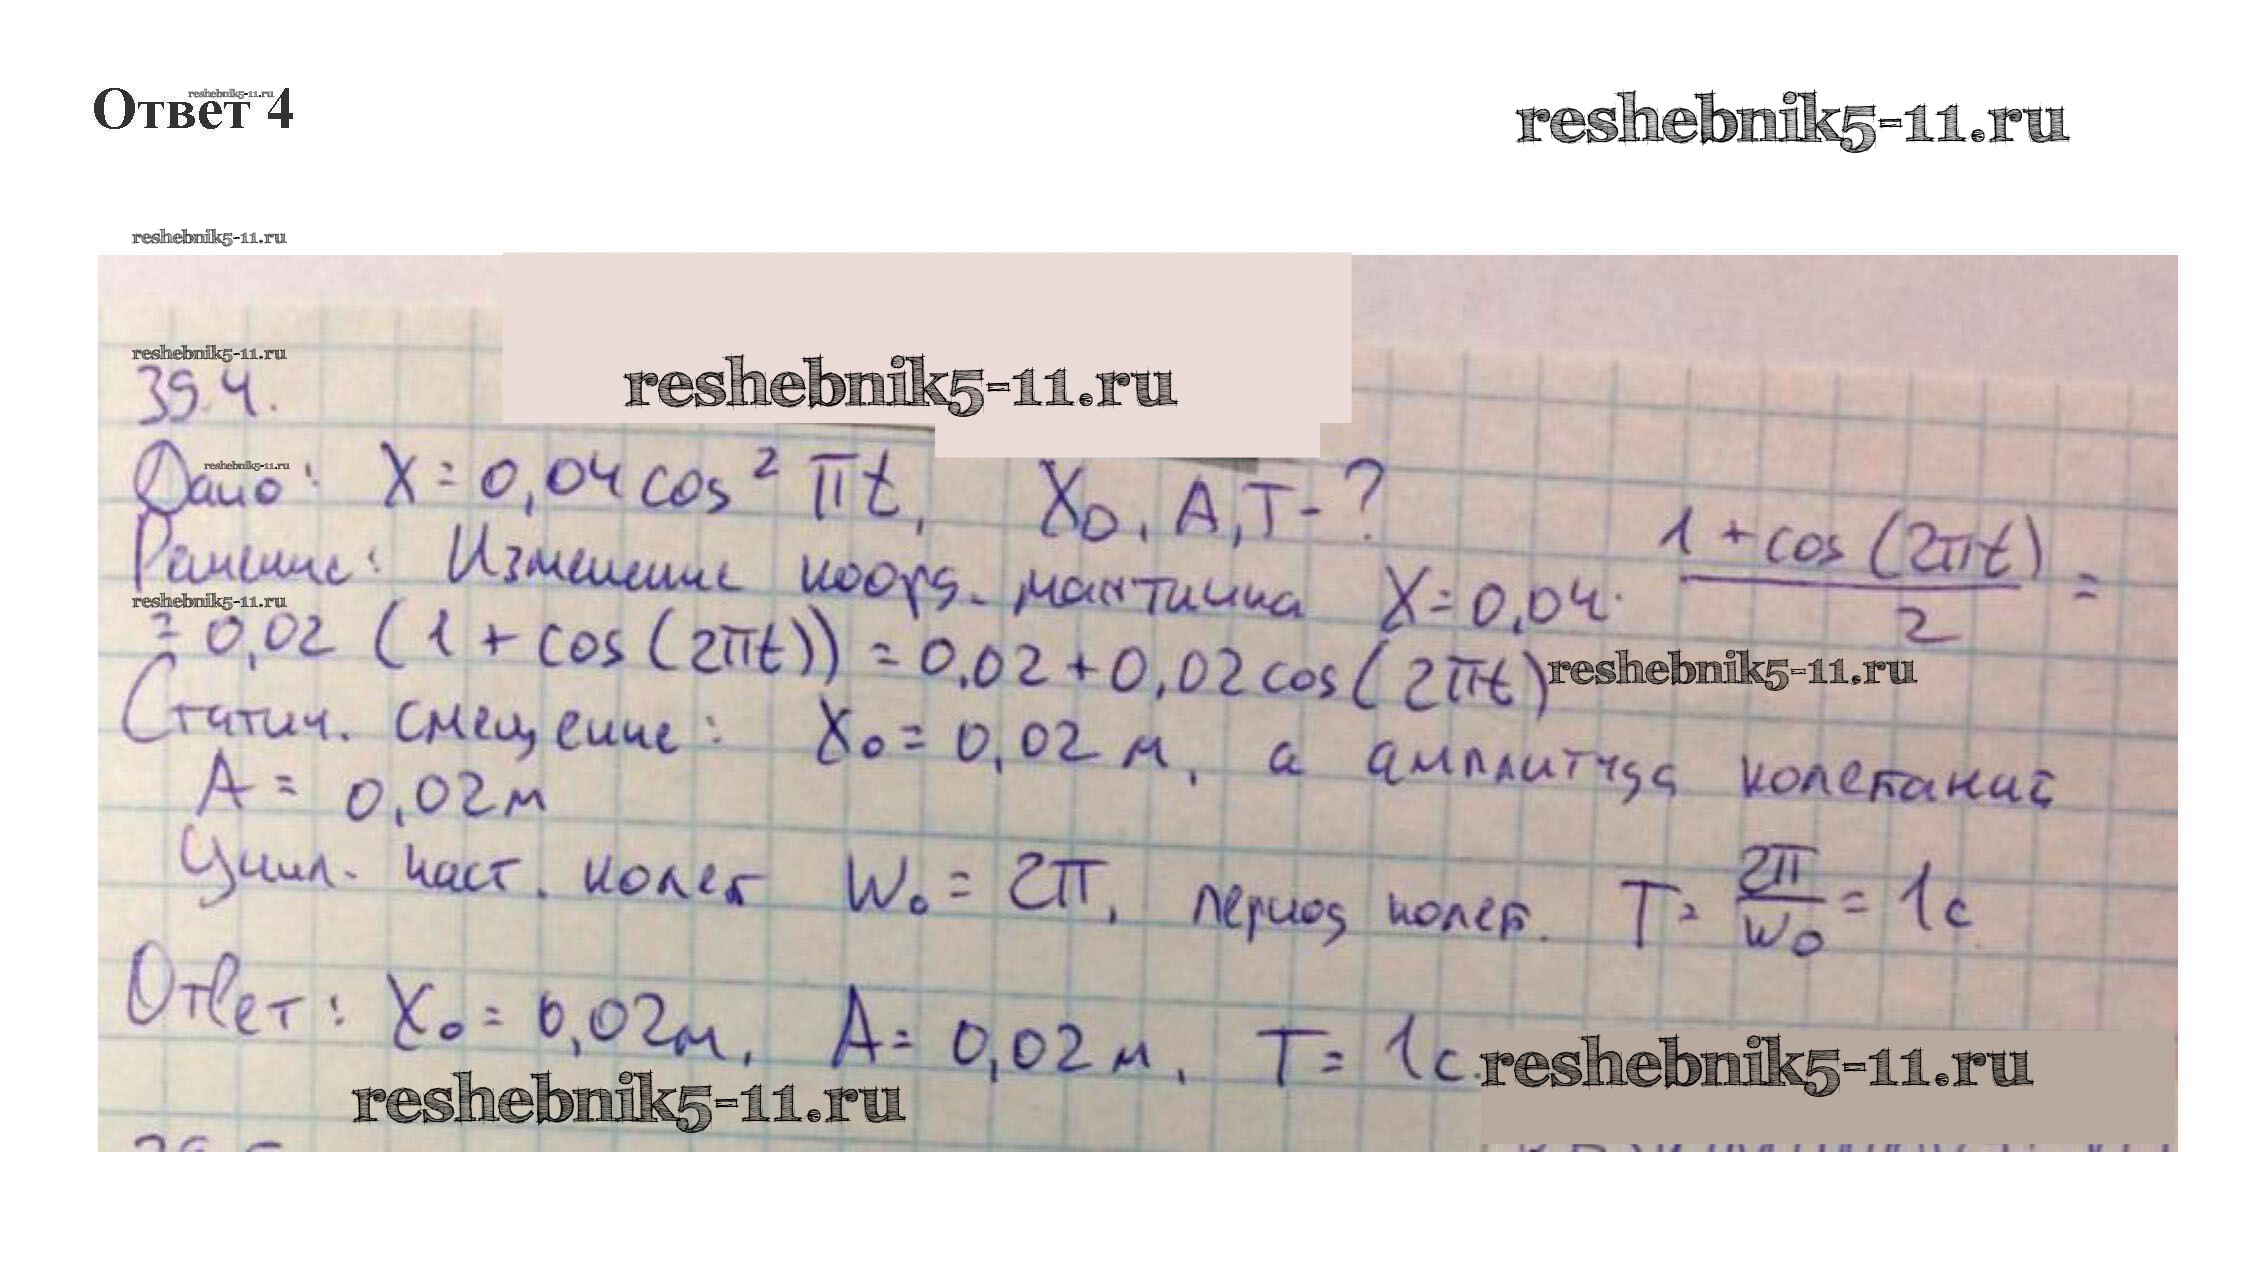 Ответ 4
reshebnik5-11.ru
reshebnik5-11.ru
reshebnik5-11.ru
reshebnik5-11.ru
reshebnik5-11.ru
39.4.
Дано: X = 0,04 cos² πt, X₀, A, T - ?
reshebnik5-11.ru
Решение: Изменение коорд. маятника X = 0,04 · (1 + cos (2πt))/2 =
reshebnik5-11.ru
= 0,02 (1 + cos (2πt)) = 0,02 + 0,02 cos (2πt)
reshebnik5-11.ru
Статич. смещение: X₀ = 0,02 м, а амплитуда колебаний
A = 0,02 м
Цикл. част. колеб W₀ = 2π, период колеб. T = 2π/W₀ = 1 с
Ответ: X₀ = 0,02 м, A = 0,02 м, T = 1 с.
reshebnik5-11.ru
reshebnik5-11.ru